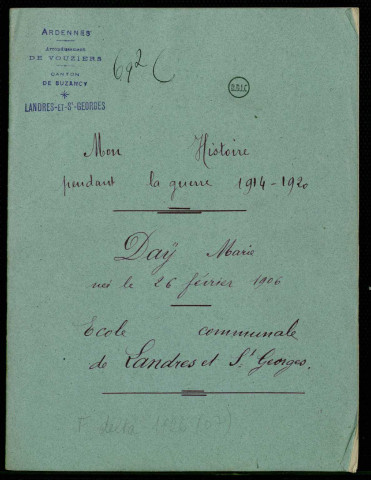 ARDENNES
Arrondissement
DE VOUZIERS
CANTON
DE BUZANCY
LANDRES-ET-St-GEORGES
B.D.I.C
Mon Histoire
pendant la guerre 1914-1920
Daÿ Marie
née le 26 février 1906
Ecole communale
de Landres et St Georges.
F delta 1126